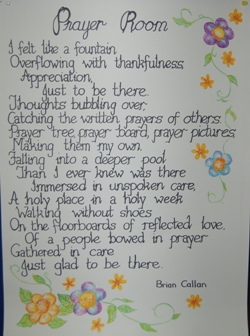 Prayer Room
I felt like a fountain
Overflowing with thankfulness,
Appreciation,
Just to be there.
Thoughts bubbling over,
Catching the written prayers of others.
Prayer tree, prayer board, prayer pictures,
Making them my own.
Falling into a deeper pool
Than I ever knew was there
Immersed in unspoken care,
A holy place in a holy week
Walking without shoes
On the floorboards of reflected love.
Of a people bowed in prayer
Gathered in care
Just glad to be there.
Brian Callan